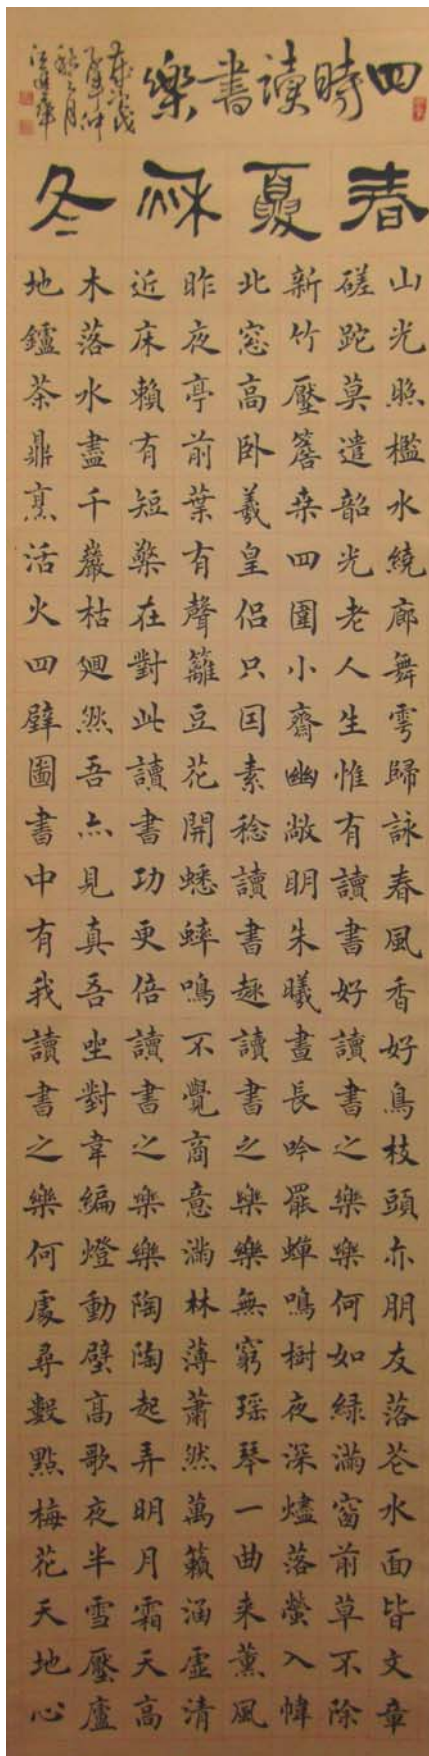 四時讀書樂
仲
秋之月
春夏秌冬
山光照檻水繞廊舞雩歸詠春風香好鳥枝頭亦朋友落花水面皆文章
磋跎莫遣韶光老人生惟有讀書好讀書之樂樂何如綠滿窗前草不除
新竹壓簷桑四圍小齋幽敞明朱曦晝長吟罷蟬鳴樹夜深燼落螢入幃
北窓高卧羲皇侶只因素稔讀書趣讀書之樂樂無窮瑤琴一曲来薰風
昨夜亭前葉有聲籬豆花開蟋蟀鳴不覺商意滿林薄蕭然萬籟涵虛清
近床賴有短檠在對此讀書功更倍讀書之樂樂陶陶起弄明月霜天高
木落水盡千巖枯迥然吾亦見真吾坐對韋編燈動壁高歌夜半雪壓廬
地鑪茶鼎烹活火四壁圖書中有我讀書之樂何處尋數點梅花天地心